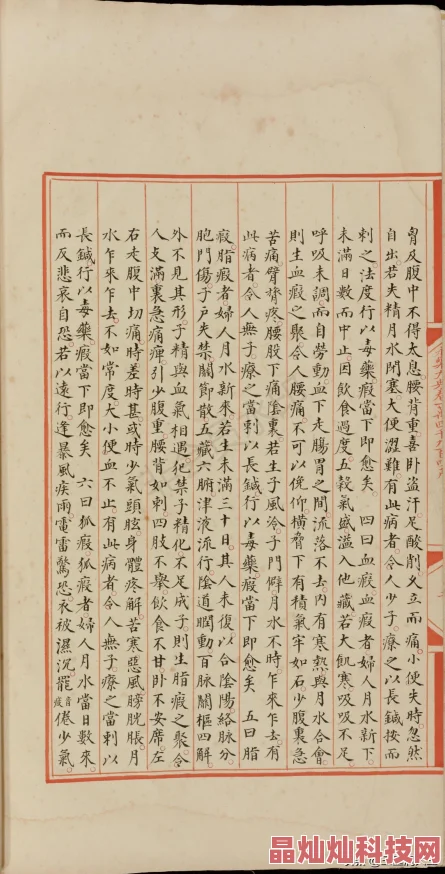 胷及腹中不得太息腰背重喜卧盜汗足酸削久立而痛小便失時忽然
自出若失精月水閉塞大便澀難有此病者令人少子療之以長鍼按而
刺之法度行以毒藥瘕當下即愈矣 四曰血瘕血瘕者婦人月水新下
未滿日數而中止因飲食過度五穀氣盛溢入他藏若大飢寒吸吸不足
呼吸未調而自勞動血下走腸胃之間流落不去內有寒熱與月水合會
則生血瘕之聚令人腰痛不可以俛仰橫脅下有積氣牢如石少腹裏急
苦痛臂背疼腰股下痛陰裏若生子風冷子門僻月水不時乍來乍去有
此病者令人無子療之當刺以長鍼行以毒藥瘕當下即愈矣 五曰脂
瘕脂瘕者婦人月水新來若生未滿三十日其人未復以合陰陽絡脉分
胞門傷子戶失禁關節散五藏六腑津液流行陰道瞤動百脉關樞四解
外不見其形子精與血氣相遇犯禁子精化不足成子則生脂瘕之聚令
人支滿裏急痛痺引少腹重腰背如刺四肢不舉飲食不甘卧不安席左
右走腹中切痛時差時甚或時少氣頭眩身體疼解苦寒惡風膀胱脹月
水乍來乍去不如常度大小便血不止有此病者令人無子療之當刺以
長鍼行以毒藥瘕當下即愈矣 六曰狐瘕狐瘕者婦人月水當日數來
而反悲哀自恐若以遠行逢暴風疾雨電雷驚恐衣被濕沉罷音疲倦少氣
晶灿灿科技网